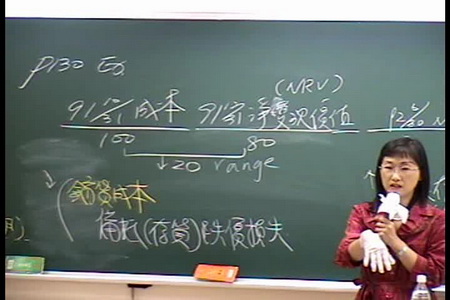 P130 Ex
(NRV)
91 12/31 成本 91 12/31 淨變現價值
100 80
↓20 range
銷貨成本
備抵(存貨)跌價損失